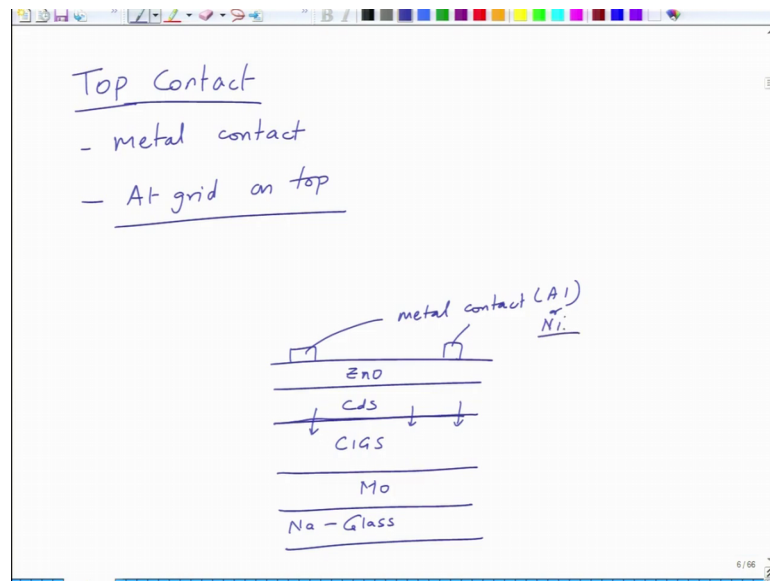 Top Contact
- metal contact
- Al grid on top
metal contact (Al)
or
Ni.
ZnO
Cds
CIGS
Mo
Na - Glass
6 / 66